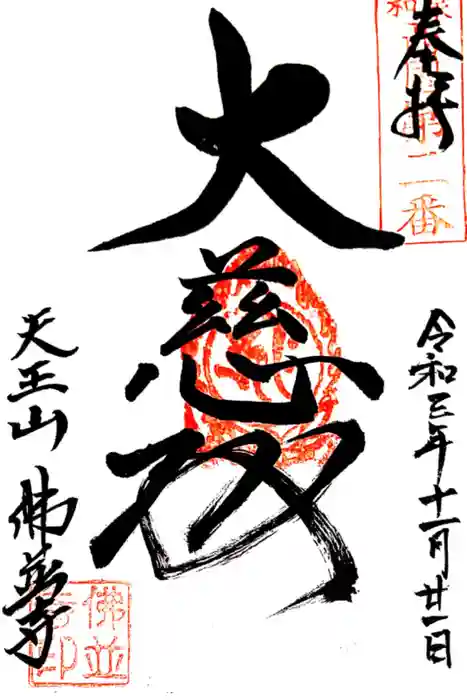 奉拝
二番
大慈殿
令和三年十一月廿一日
天王山 佛並寺
佛並寺印